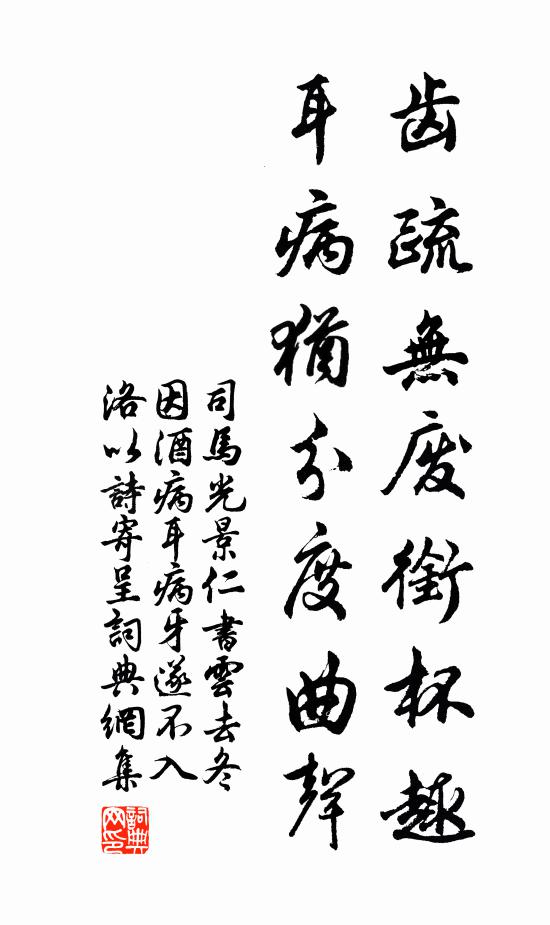 齿疏無废銜杯趣
耳病猶分度曲聲
司馬光景仁書雲去冬
因酒病耳病牙遂不入
洛以詩寄呈詞典網集
詞典
网印